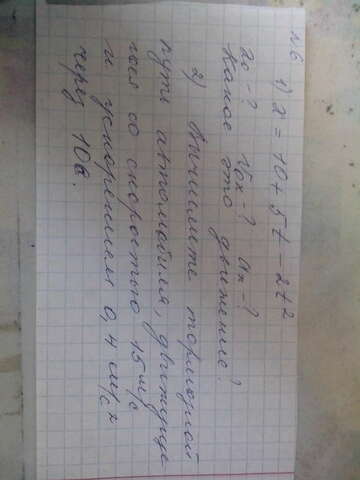 №6 1) x = 10 + 5t - 2t²
x₀ -? V₀x -? ax -?
Какое это движение?
2) Вычислите тормозной
путь автомобиля, движуще
гося со скоростью 15 м/с
и ускорением 0,4 см/с²
через 10с.